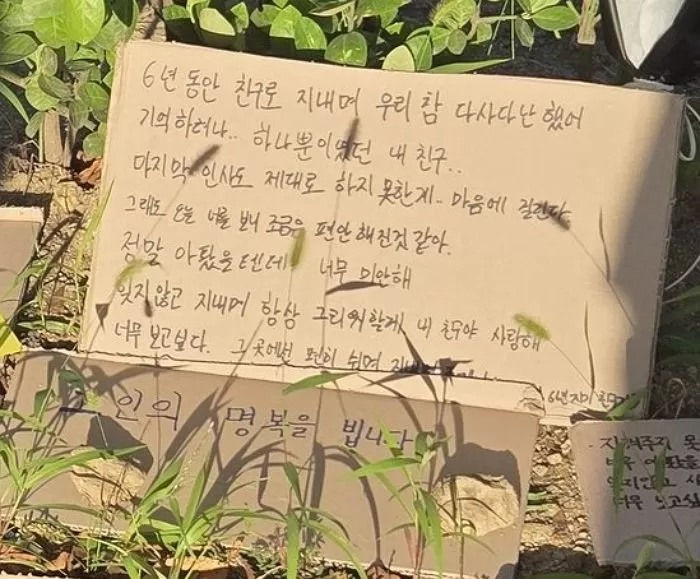 6년 동안 친구로 지내며 우리 참 다사다난 했어
기억하려나.. 하나뿐이였던 내 친구..
마지막 인사도 제대로 하지 못한게.. 마음에 걸린다
그래도 오늘 너를 보니 조금은 편안해진것 같아.
정말 아팠을텐데 너무 미안해
잊지않고 지내며 항상 그리워할게, 내 친구야 사랑해
너무 보고싶다. 그 곳에선 편히 쉬며
6년지기 친구
고인의 명복을 빕니다